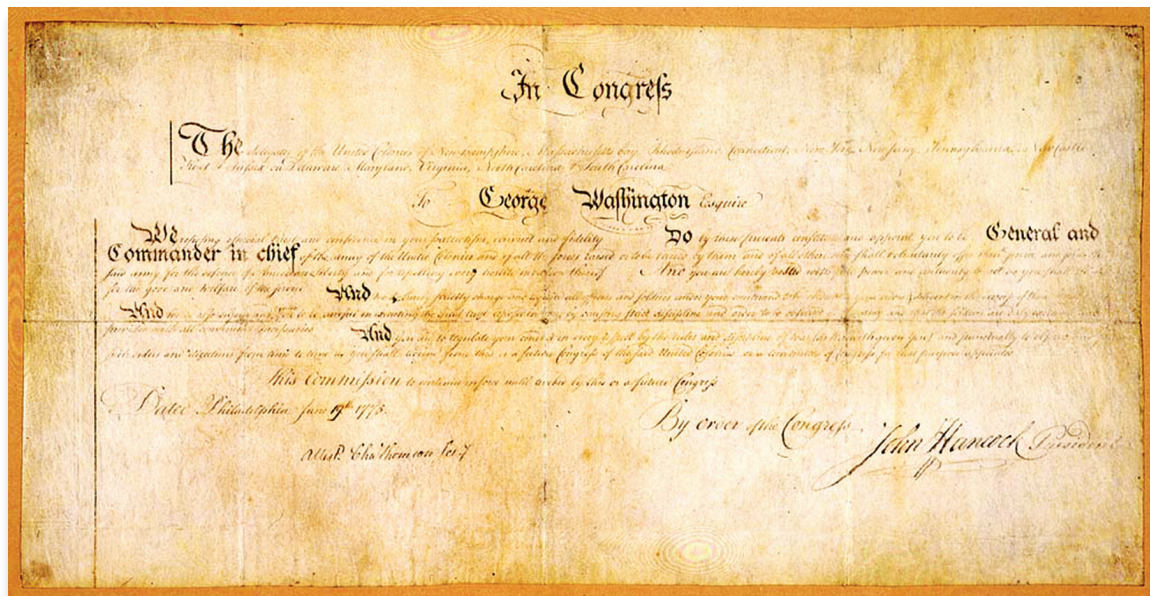 In Congress
The delegates of the United Colonies of Newhampshire, Massachusetts bay, Rhodeisland, Connecticut, New York, New Jersey, Pennsylvania, Newcastle
Kent & Sussex on Delaware, Maryland, Virginia, North Carolina & South Carolina
To George Washington Esquire
We reposing especial trust and confidence in your patriotism, conduct and fidelity Do by these presents constitute and appoint you to be General and
Commander in chief of the army of the United Colonies and of all the forces raised or to be raised by them and of all others who shall voluntarily offer their service and join the
said army for the defence of American Liberty and for repelling every hostile invasion thereof And you are hereby vested with full power and authority to act as you shall think
for the good and welfare of the service And we do hereby strictly charge and require all officers and soldiers under your command to be obedient to your orders & diligent in the exercise of their
And we also enjoin and require you to be careful in executing the great trust reposed in you, by causing strict discipline and order to be observed in the army and that the soldiers are duly exercised
provided with all convenient necessaries And you are to regulate your conduct in every respect by the rules and discipline of war and punctually to observe and follow
such orders and directions from time to time as you shall receive from this or a future Congress of the said United Colonies or a committee of Congress for that purpose appointed
This Commission to continue in force until revoked by this or a future Congress
Dated Philadelphia June 19th 1775.
By order of the Congress
John Hancock President
Attest. Cha Thomson Secy